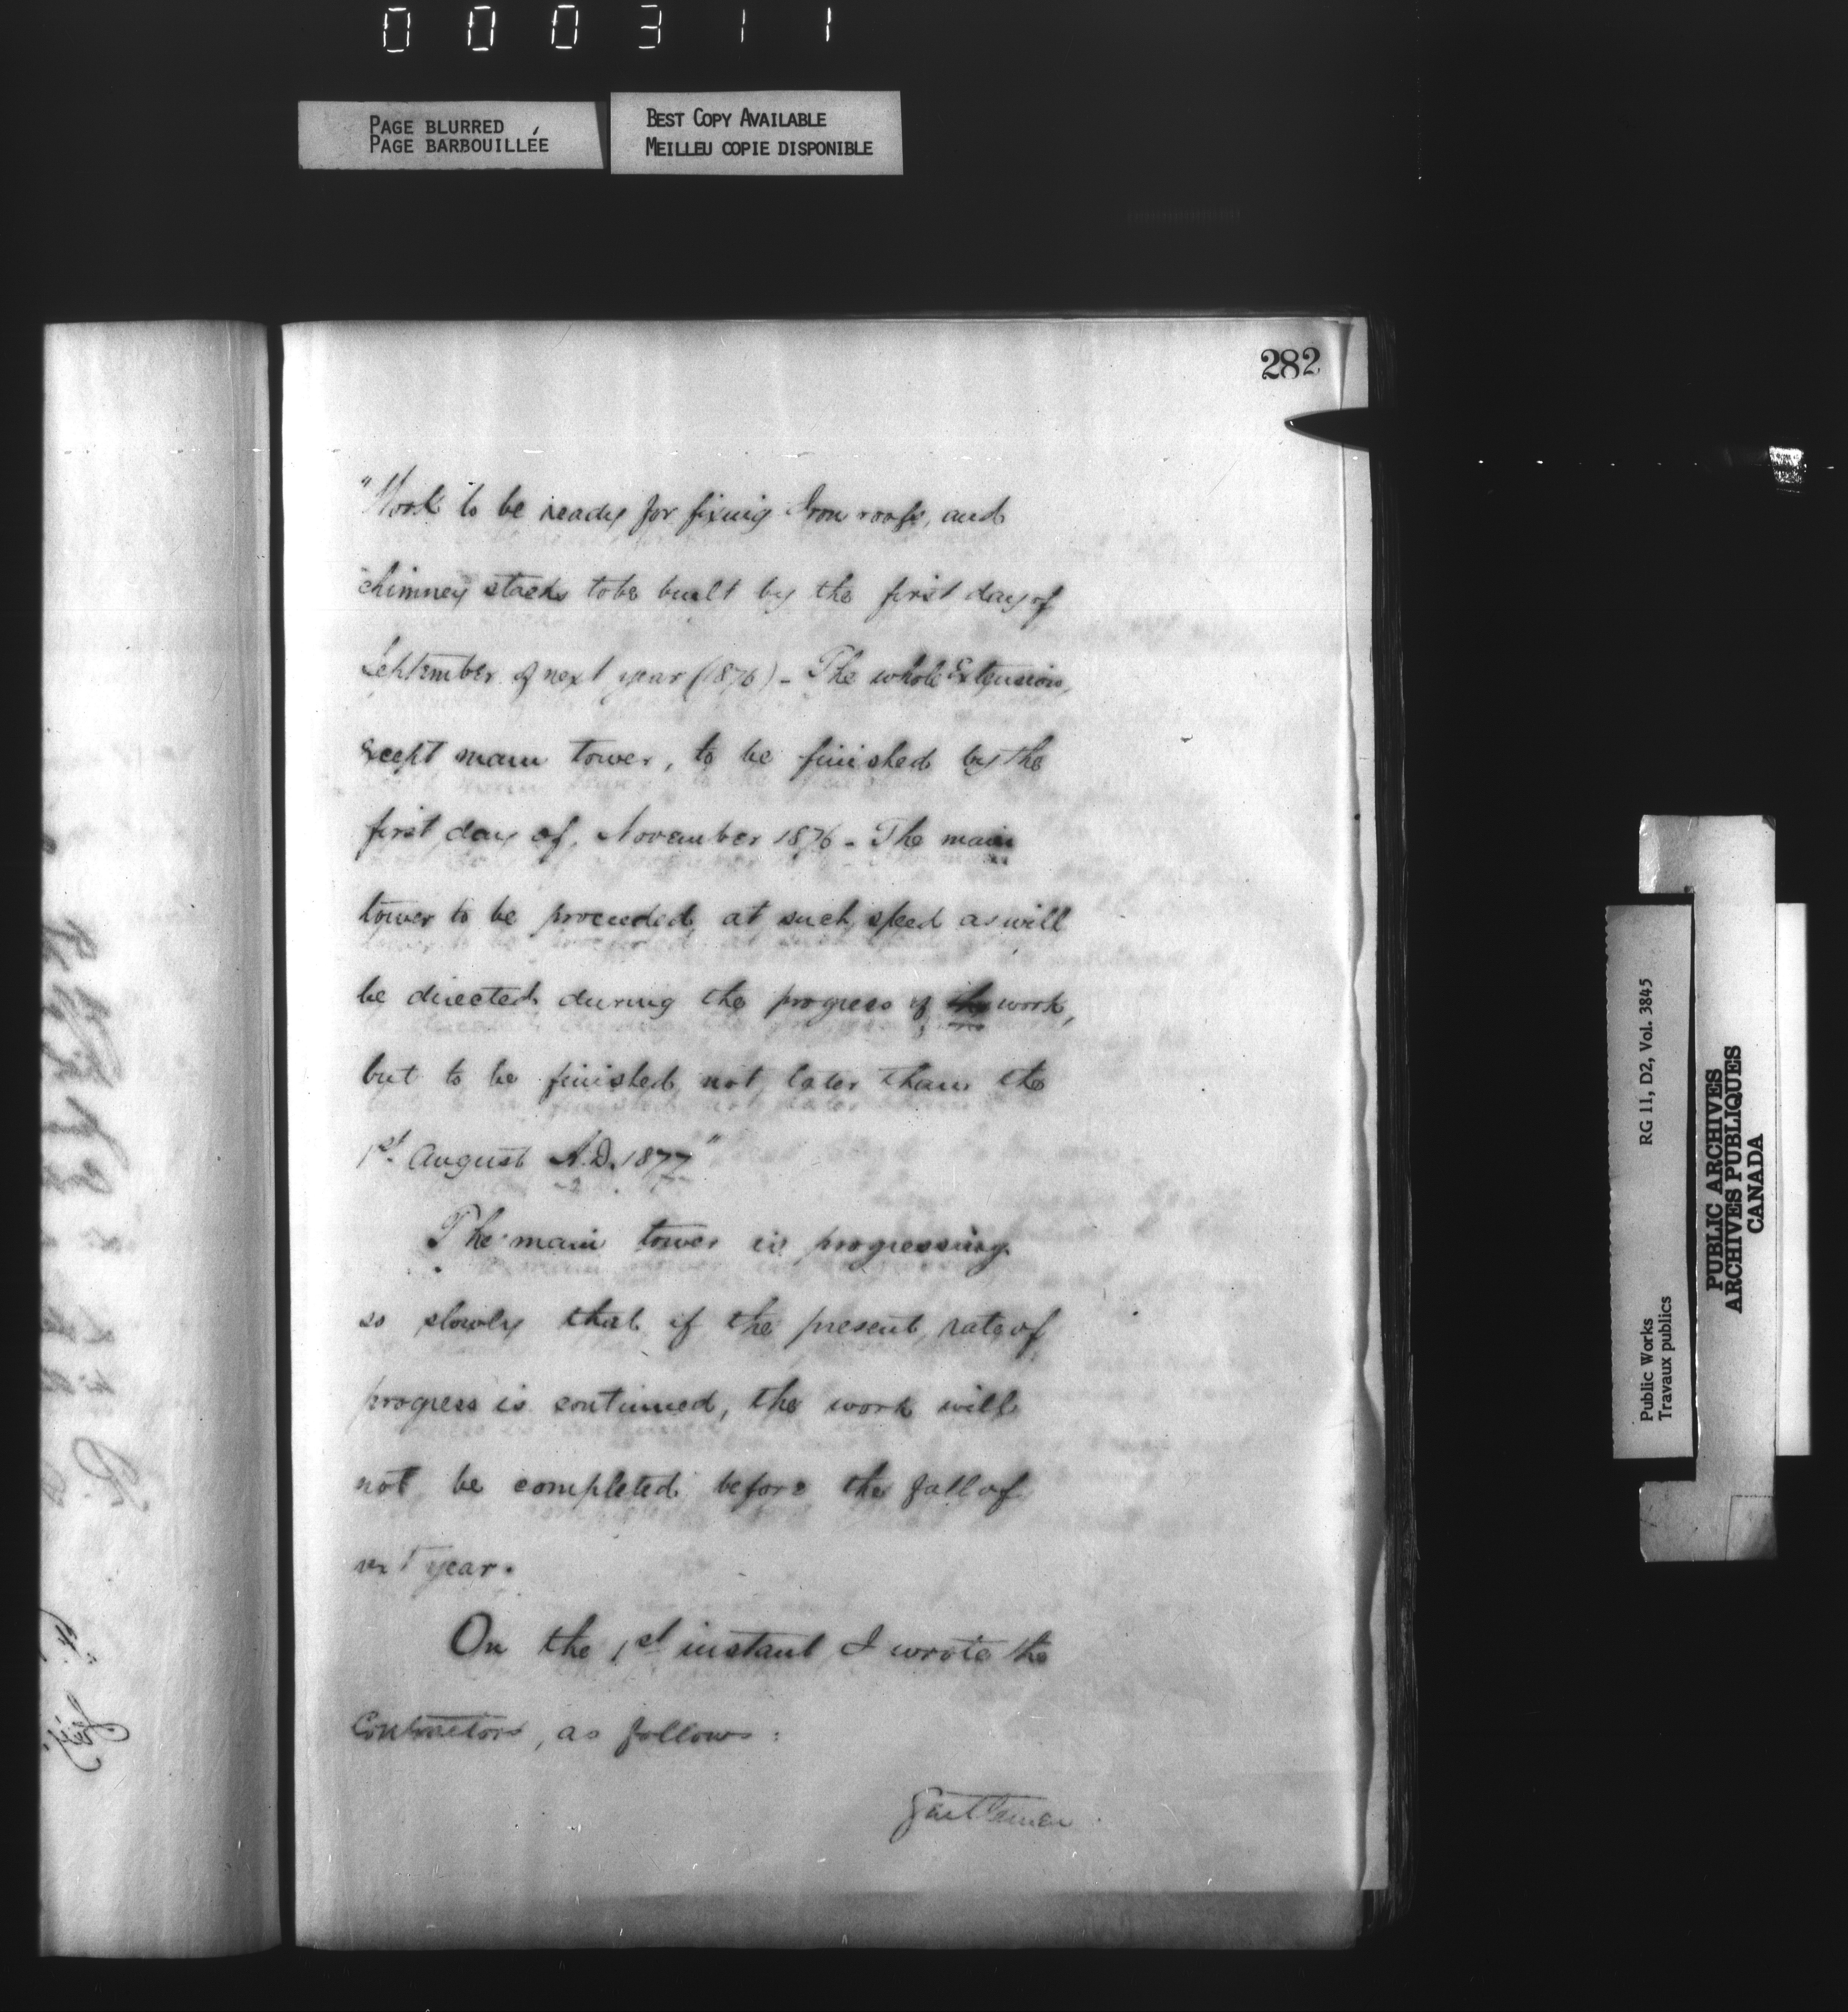 000311
PAGE BLURRED
PAGE BARBOUILLÉE
BEST COPY AVAILABLE
MEILLEU COPIE DISPONIBLE
282
"Work to be ready for fixing Iron roofs, and
"chimney stacks to be built by the first day of
September of next year (1876) - The whole Extension,
except main tower, to be finished by the
first day of November 1876 - The main
tower to be proceeded at such speed as will
be directed during the progress of the work,
but to be finished not later than the
1st August A.D. 1877"
The main tower is progressing
so slowly that if the present rate of
progress is continued, the work will
not be completed before the fall of
next year.
On the 1st instant I wrote the
Contractors, as follows:
Gentlemen
RG 11, D2, Vol. 3845
Public Works
Travaux publics
PUBLIC ARCHIVES
ARCHIVES PUBLIQUES
CANADA